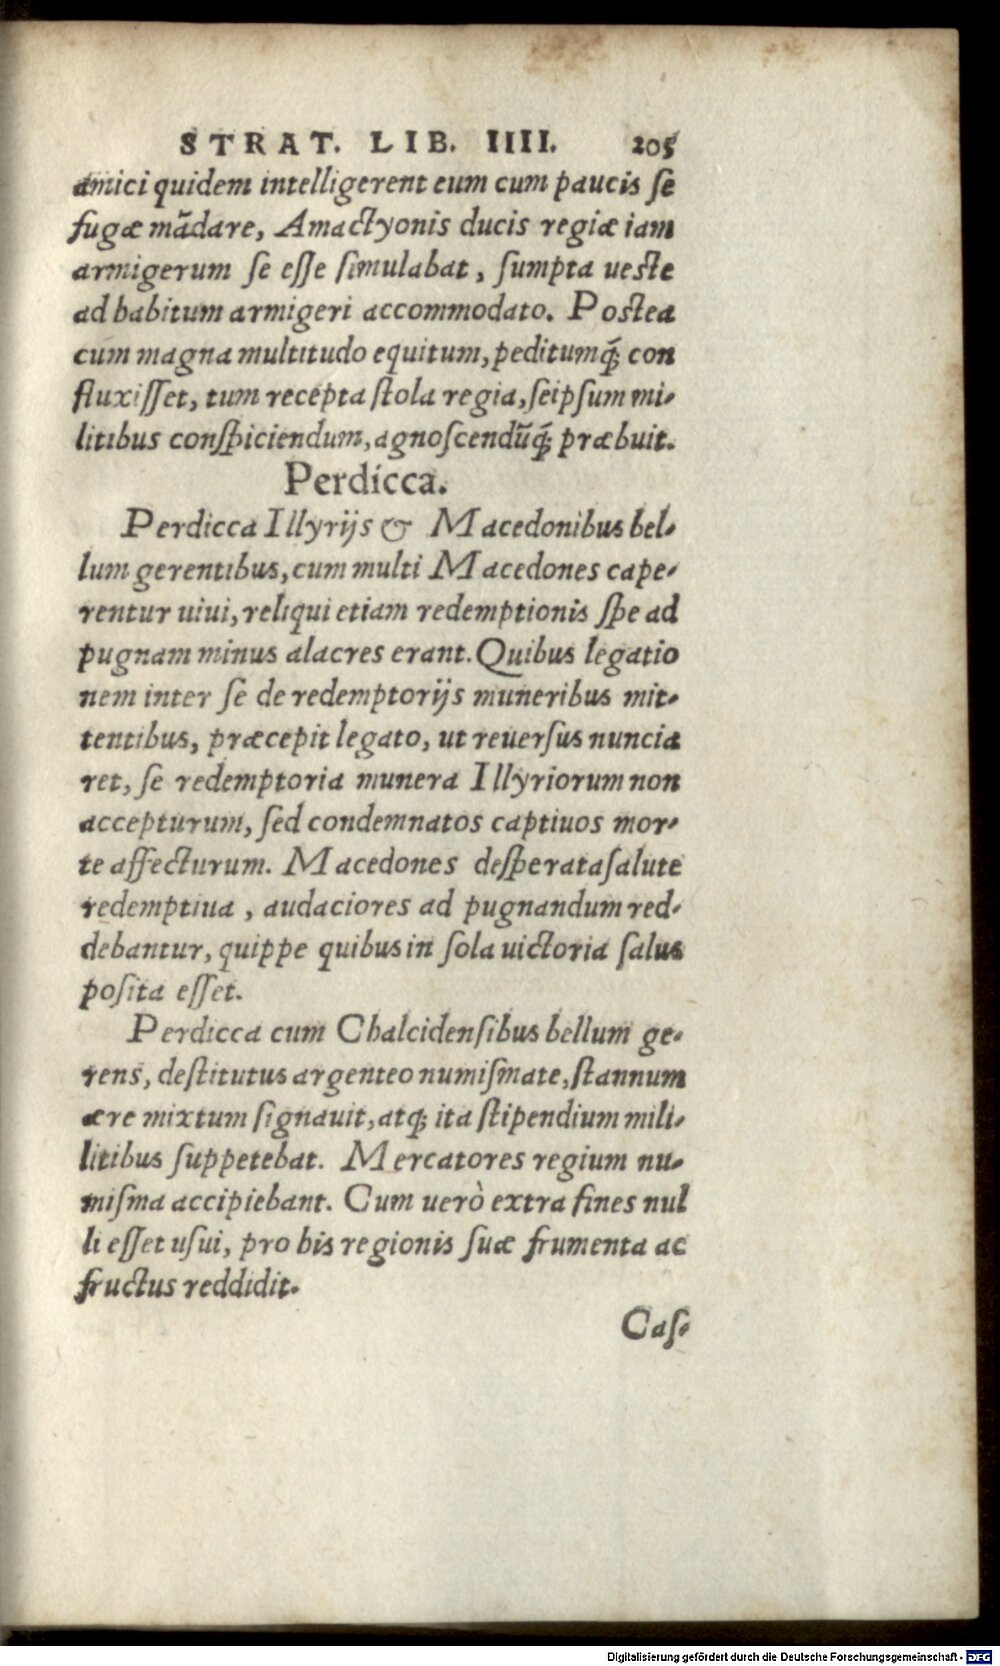 STRAT. LIB. IIII. 205
amici quidem intelligerent eum cum paucis se
fugæ mādare, Amactyonis ducis regiæ iam
armigerum se esse simulabat, sumpta ueste
ad habitum armigeri accommodato. Postea
cum magna multitudo equitum, peditumq́; con
fluxisset, tum recepta stola regia, seipsum mi-
litibus conspiciendum, agnoscendūq́; præbuit.
Perdicca.
Perdicca Illyrijs & Macedonibus bel-
lum gerentibus, cum multi Macedones cape-
rentur uiui, reliqui etiam redemptionis spe ad
pugnam minus alacres erant. Quibus legatio
nem inter se de redemptorijs muneribus mit-
tentibus, præcepit legato, ut reuersus nuncia
ret, se redemptoria munera Illyriorum non
accepturum, sed condemnatos captiuos mor-
te affecturum. Macedones desperata salute
redemptiua, audaciores ad pugnandum red-
debantur, quippe quibus in sola uictoria salus
posita esset.
Perdicca cum Chalcidensibus bellum ge-
rens, destitutus argenteo numismate, stannum
ære mixtum signauit, atq; ita stipendium mili-
litibus suppetebat. Mercatores regium nu-
misma accipiebant. Cum uerò extra fines nul
li esset usui, pro his regionis suæ frumenta ac
fructus reddidit.
Cas-
Digitalisierung gefördert durch die Deutsche Forschungsgemeinschaft - DFG